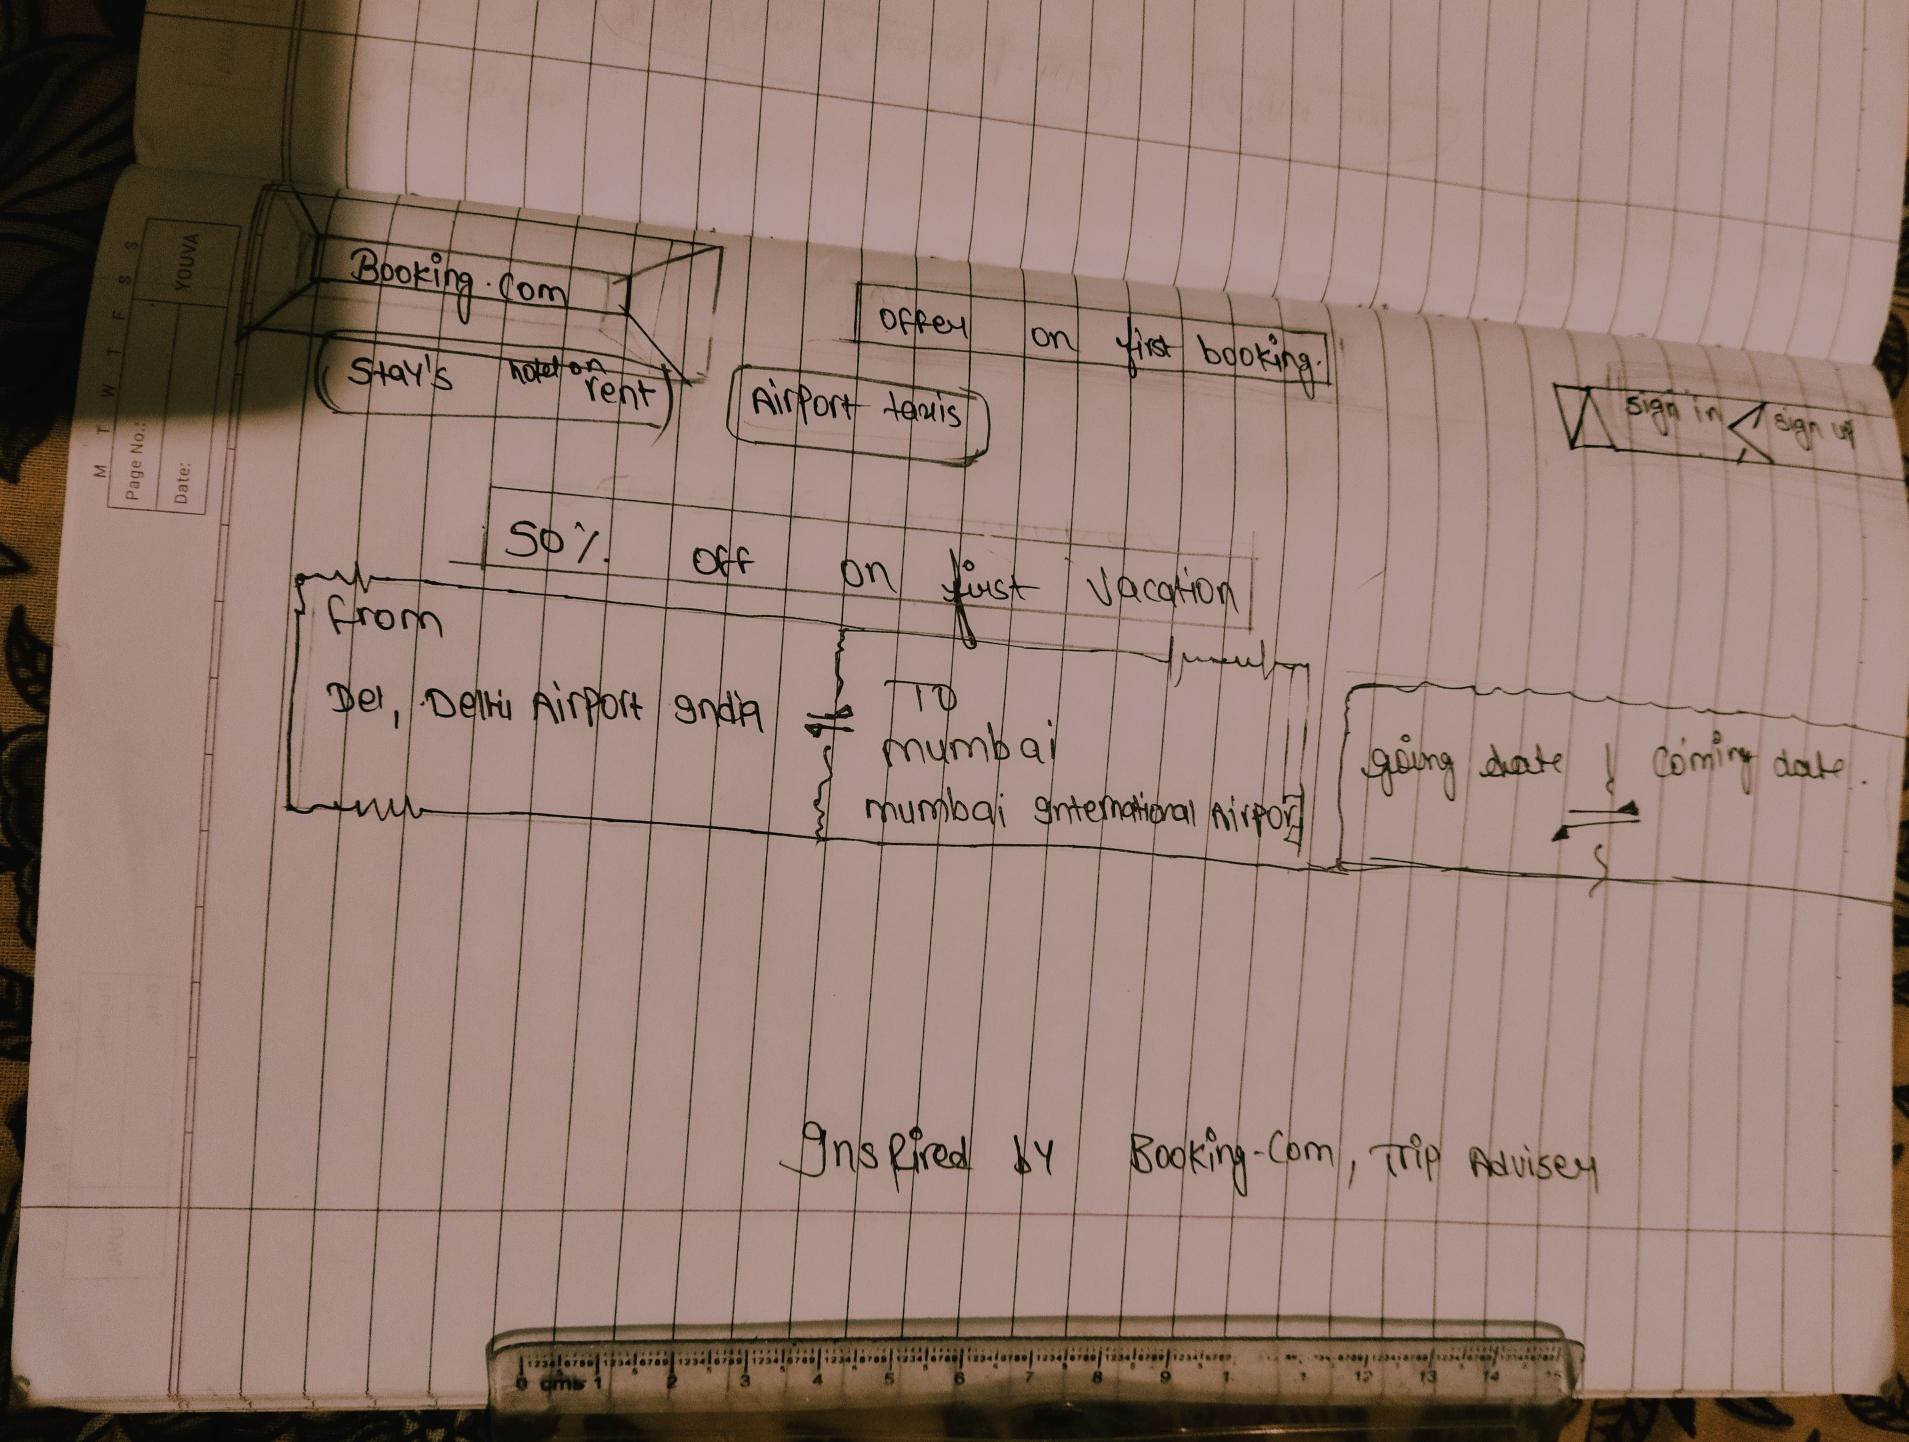 Booking.com
offer on first booking.
Stay's hotel on rent
Airport taxis
sign in
sign up
50% off on first Vacation
from
Del, Delhi Airport India
To
mumbai
mumbai International Airport
going date
Coming date.
Inspired by Booking.com, Trip Adviser
M T W T F S S
Page No.:
Date:
YOUVA
0 cms 1 2 3 4 5 6 7 8 9 1 12 13 14 15